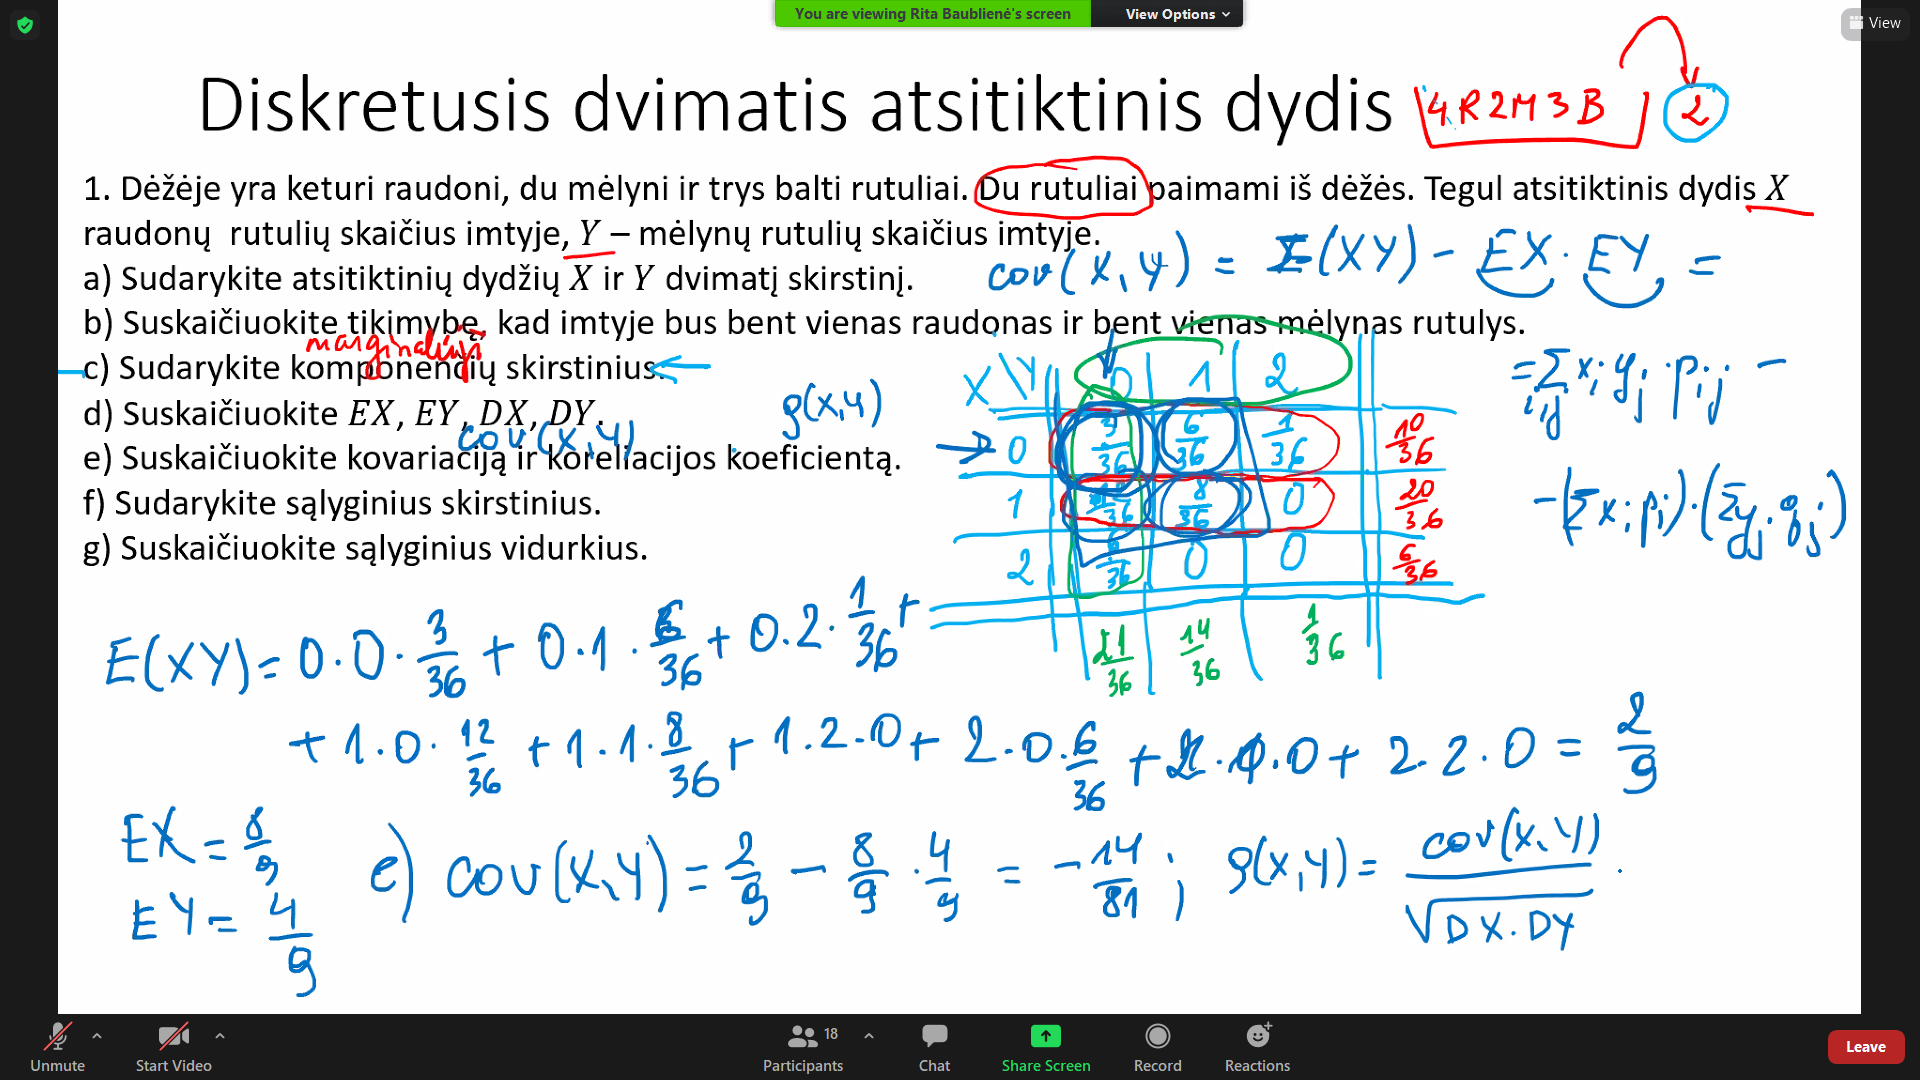 You are viewing Rita Baublienė's screen
View Options
View
Diskretusis dvimatis atsitiktinis dydis
4R2M3B
2
1. Dėžėje yra keturi raudoni, du mėlyni ir trys balti rutuliai. Du rutuliai paimami iš dėžės. Tegul atsitiktinis dydis X
raudonų rutulių skaičius imtyje, Y – mėlynų rutulių skaičius imtyje.
cov(X,Y) = E(XY) - EX · EY =
a) Sudarykite atsitiktinių dydžių X ir Y dvimatį skirstinį.
b) Suskaičiuokite tikimybę, kad imtyje bus bent vienas raudonas ir bent vienas mėlynas rutulys.
c) Sudarykite komponenčių skirstinius.
d) Suskaičiuokite EX, EY, DX, DY.
cov(X,Y)
ρ(X,Y)
e) Suskaičiuokite kovariaciją ir koreliacijos koeficientą.
f) Sudarykite sąlyginius skirstinius.
g) Suskaičiuokite sąlyginius vidurkius.
= Σ x_i y_j · p_ij -
i,j
- (Σ x_i p_i) · (Σ y_j · q_j)
X\Y 0 1 2
0 3/36 6/36 1/36 10/36
1 12/36 8/36 0 20/36
2 6/36 0 0 6/36
21/36 14/36 1/36
E(XY) = 0·0·3/36 + 0·1·6/36 + 0·2·1/36 +
+ 1·0·12/36 + 1·1·8/36 + 1·2·0 + 2·0·6/36 + 2·1·0 + 2·2·0 = 2/9
EX = 8/9
EY = 4/9
e) cov(X,Y) = 2/9 - 8/9 · 4/9 = -14/81 ; ρ(X,Y) = cov(X,Y)/√DX·DY
Unmute
Start Video
Participants 18
Chat
Share Screen
Record
Reactions
Leave